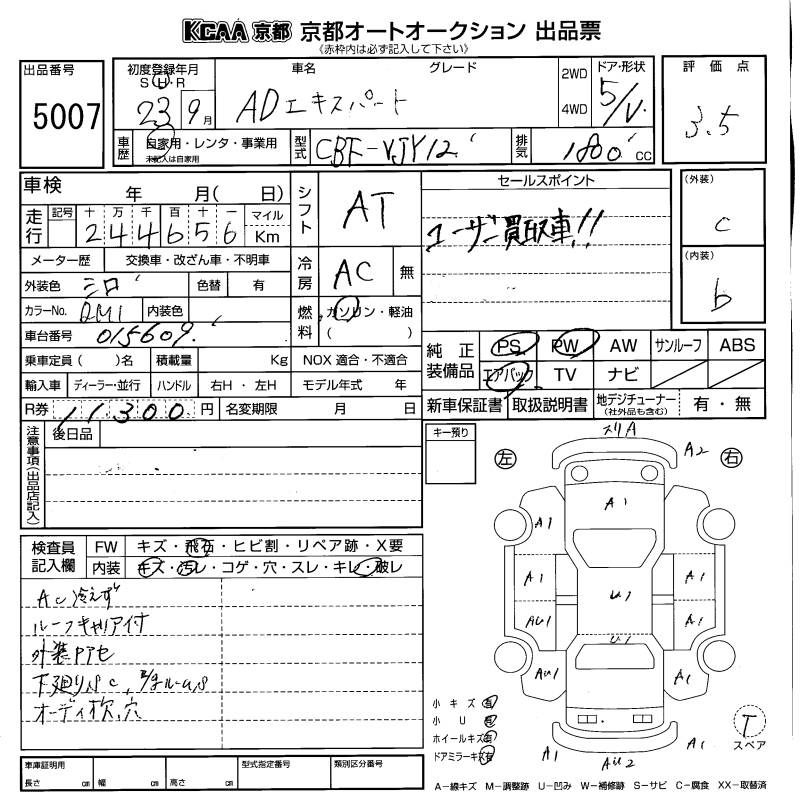 KCAA 京都 京都オートオークション 出品票
《赤枠内は必ず記入して下さい》
出品番号
5007
初度登録年月
S H R
23 9月
車名 グレード
ADエキスパート
2WD
4WD
ドア・形状
5/V
評価点
3.5
車歴
自家用・レンタ・事業用
未記入は自家用
型式
CBF-VJY12
排気
1800 cc
車検 年 月( 日)
走行
記号 十 万 千 百 十 一
244656
マイル
Km
シフト
AT
セールスポイント
ユーザー買取車!!
(外装)
C
(内装)
b
メーター歴 交換車・改ざん車・不明車
外装色 シロ 色替 有
冷房
AC 無
カラーNo. QM1 内装色
燃料
ガソリン・軽油
( )
車台番号 015609
乗車定員( )名 積載量 Kg NOX 適合・不適合
輸入車 ディーラー・並行 ハンドル 右H・左H モデル年式 年
R券 11,300 円 名変期限 月 日
純正装備品
PS PW AW サンルーフ ABS
エアバック TV ナビ
新車保証書 取扱説明書 地デジチューナー(社外品も含む) 有・無
注意事項(出品店記入)
後日品
キー預り
左
右
スリA
A2
A1
A1
A1
A1
A1
U1
AU1
A1
U1
AU1
A1
A1
AU2
A1
検査員記入欄
FW キズ・飛石・ヒビ割・リペア跡・X要
内装 キズ・汚レ・コゲ・穴・スレ・キレ・破レ
AC冷えず
ルーフキャリア付
外装Pアセ
オーディオ欠、穴
小キズ 有
小U 有
ホイールキズ 有
ドアミラーキズ 有
T
スペア
車庫証明用
長さ cm 幅 cm 高さ cm
型式指定番号
類別区分番号
A-線キズ M-調整跡 U-凹み W-補修跡 S-サビ C-腐食 XX-取替済